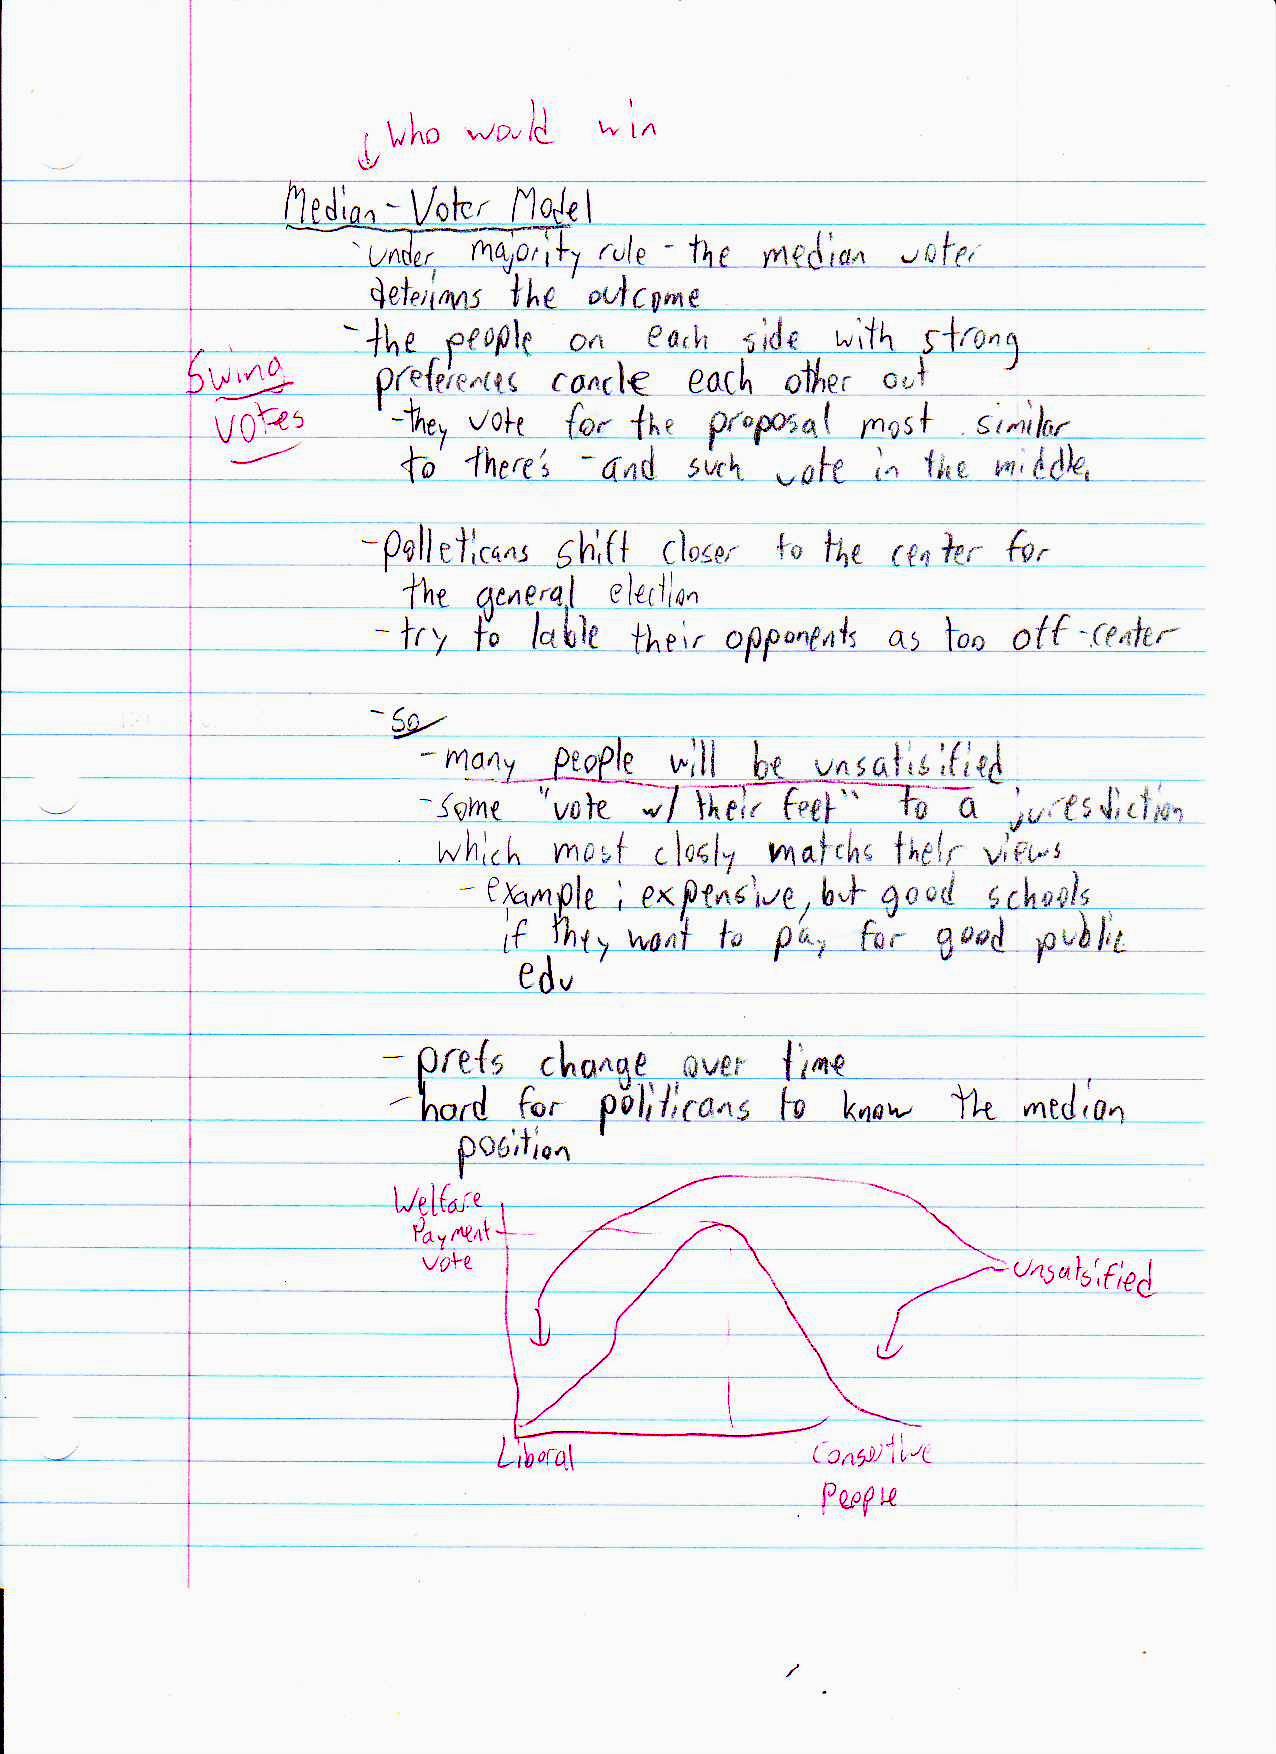 who would win
Median-Voter Model
under majority rule - the median voter
determns the outcome
- the people on each side with strong
Swing
preferences cancle each other out
votes
- they vote for the proposal most similar
to there's - and such vote in the middle.
- polleticans shift closer to the center for
the general election
- try to lable their opponents as too off-center
- So
- many people will be unsatisified
- some "vote w/ their feet" to a juresdiction
which most closly matchs their views
- example: expensive, but good schools
if they want to pay for good public
edu
- prefs change over time
- hard for politicans to know the median
position
Welfare
Payment
vote
unsatsified
Liberal
People